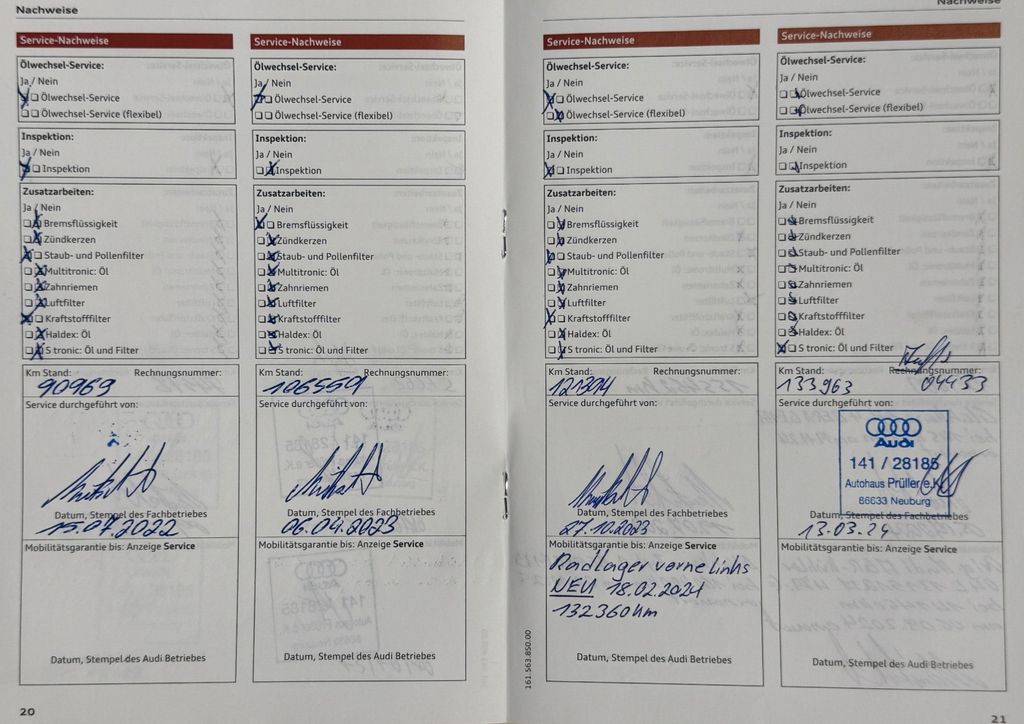 Nachweise
Service-Nachweise
Ölwechsel-Service:
Ja / Nein
Ölwechsel-Service
Ölwechsel-Service (flexibel)
Inspektion:
Ja / Nein
Inspektion
Zusatzarbeiten:
Ja / Nein
Bremsflüssigkeit
Zündkerzen
Staub- und Pollenfilter
Multitronic: Öl
Zahnriemen
Luftfilter
Kraftstofffilter
Haldex: Öl
S tronic: Öl und Filter
Km Stand: Rechnungsnummer:
90969
Service durchgeführt von:
Datum, Stempel des Fachbetriebes
15.07.2022
Mobilitätsgarantie bis: Anzeige Service
Datum, Stempel des Audi Betriebes
20
Service-Nachweise
Ölwechsel-Service:
Ja / Nein
Ölwechsel-Service
Ölwechsel-Service (flexibel)
Inspektion:
Ja / Nein
Inspektion
Zusatzarbeiten:
Ja / Nein
Bremsflüssigkeit
Zündkerzen
Staub- und Pollenfilter
Multitronic: Öl
Zahnriemen
Luftfilter
Kraftstofffilter
Haldex: Öl
S tronic: Öl und Filter
Km Stand: Rechnungsnummer:
106559
Service durchgeführt von:
Datum, Stempel des Fachbetriebes
06.04.2023
Mobilitätsgarantie bis: Anzeige Service
Datum, Stempel des Audi Betriebes
Nachweise
Service-Nachweise
Ölwechsel-Service:
Ja / Nein
Ölwechsel-Service
Ölwechsel-Service (flexibel)
Inspektion:
Ja / Nein
Inspektion
Zusatzarbeiten:
Ja / Nein
Bremsflüssigkeit
Zündkerzen
Staub- und Pollenfilter
Multitronic: Öl
Zahnriemen
Luftfilter
Kraftstofffilter
Haldex: Öl
S tronic: Öl und Filter
Km Stand: Rechnungsnummer:
121394
Service durchgeführt von:
Datum, Stempel des Fachbetriebes
27.10.2023
Mobilitätsgarantie bis: Anzeige Service
Radlager vorne links
NEU 18.02.2024
132360km
Datum, Stempel des Audi Betriebes
161.563.850.00
Service-Nachweise
Ölwechsel-Service:
Ja / Nein
Ölwechsel-Service
Ölwechsel-Service (flexibel)
Inspektion:
Ja / Nein
Inspektion
Zusatzarbeiten:
Ja / Nein
Bremsflüssigkeit
Zündkerzen
Staub- und Pollenfilter
Multitronic: Öl
Zahnriemen
Luftfilter
Kraftstofffilter
Haldex: Öl
S tronic: Öl und Filter
Km Stand: Rechnungsnummer:
133963 04433
Service durchgeführt von:
Audi
141 / 28185
Autohaus Prüller e.K.
86633 Neuburg
Datum, Stempel des Fachbetriebes
13.03.24
Mobilitätsgarantie bis: Anzeige Service
Datum, Stempel des Audi Betriebes
21